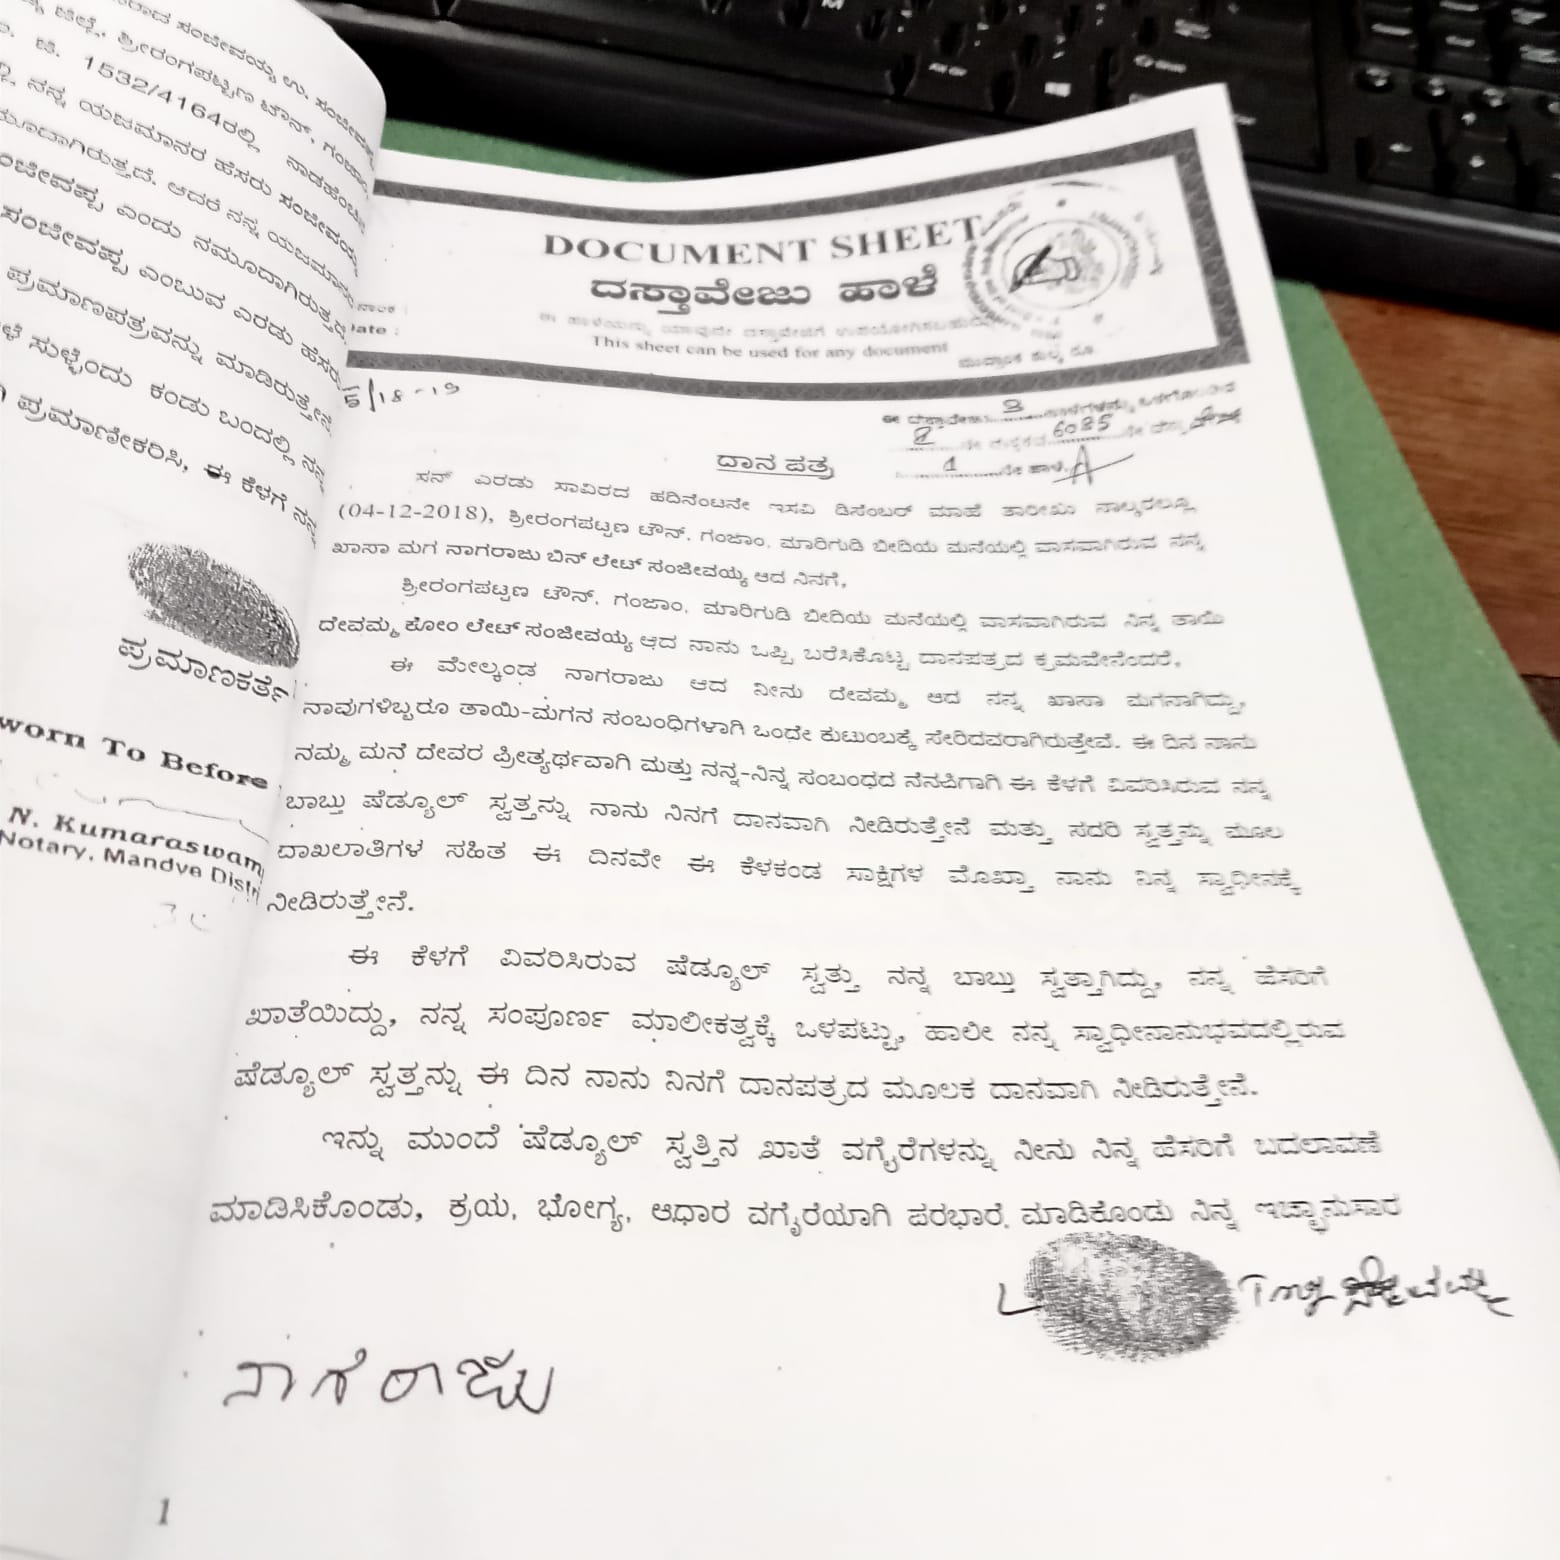 ರಾದ ಸಂಜೀವಯ್ಯ ಉ. ಸಂಜೀವಪ್ಪ
ಜಿಲ್ಲೆ, ಶ್ರೀರಂಗಪಟ್ಟಣ ಟೌನ್, ಗಂಜಾಂ,
ಜಿ. 1532/4164ರಲ್ಲಿ ನಾಡಹೆಂಚಿನ
ನನ್ನ ಯಜಮಾನರ ಹೆಸರು ಸಂಜೀವಯ್ಯ
ಮೂದಾಗಿರುತ್ತದೆ. ಆದರೆ ನನ್ನ ಯಜಮಾನರ
ಂಜೀವಪ್ಪ ಎಂದು ನಮೂದಾಗಿರುತ್ತದೆ.
ಸಂಜೀವಪ್ಪ ಎಂಬುವ ಎರಡು ಹೆಸರು
ಪ್ರಮಾಣಪತ್ರವನ್ನು ಮಾಡಿರುತ್ತೇನೆ.
ಸುಳ್ಳೆಂದು ಕಂಡು ಬಂದಲ್ಲಿ ನನ್ನ
ಪ್ರಮಾಣೀಕರಿಸಿ, ಈ ಕೆಳಗೆ ನನ್ನ
ಪ್ರಮಾಣಕರ್ತೆ
worn To Before
N. Kumaraswam
Notary, Mandya Distr
DOCUMENT SHEET
ದಸ್ತಾವೇಜು ಹಾಳೆ
ate :
ಈ ಹಾಳೆಯನ್ನು ಯಾವುದೇ ದಸ್ತಾವೇಜಿಗೆ ಉಪಯೋಗಿಸಬಹುದು
This sheet can be used for any document
ಮುದ್ರಾಂಕ ಶುಲ್ಕ ರೂ.
5/18-19
ಈ ದಸ್ತಾವೇಜು 3 ಹಾಳೆಗಳನ್ನು ಒಳಗೊಂಡಿದೆ
6085
1 ನೇ ಹಾಳೆ.
ದಾನ ಪತ್ರ
ಸನ್ ಎರಡು ಸಾವಿರದ ಹದಿನೆಂಟನೇ ಇಸವಿ ಡಿಸೆಂಬರ್ ಮಾಹೆ ತಾರೀಖು ನಾಲ್ಕರಲ್ಲೂ
(04-12-2018), ಶ್ರೀರಂಗಪಟ್ಟಣ ಟೌನ್, ಗಂಜಾಂ, ಮಾರಿಗುಡಿ ಬೀದಿಯ ಮನೆಯಲ್ಲಿ ವಾಸವಾಗಿರುವ ನನ್ನ
ಖಾಸಾ ಮಗ ನಾಗರಾಜು ಬಿನ್ ಲೇಟ್ ಸಂಜೀವಯ್ಯ ಆದ ನಿನಗೆ,
ಶ್ರೀರಂಗಪಟ್ಟಣ ಟೌನ್, ಗಂಜಾಂ, ಮಾರಿಗುಡಿ ಬೀದಿಯ ಮನೆಯಲ್ಲಿ ವಾಸವಾಗಿರುವ ನಿನ್ನ ತಾಯಿ
ದೇವಮ್ಮ ಕೋಂ ಲೇಟ್ ಸಂಜೀವಯ್ಯ ಆದ ನಾನು ಒಪ್ಪಿ ಬರೆಸಿಕೊಟ್ಟ ದಾನಪತ್ರದ ಕ್ರಮವೇನೆಂದರೆ,
ಈ ಮೇಲ್ಕಂಡ ನಾಗರಾಜು ಆದ ನೀನು ದೇವಮ್ಮ ಆದ ನನ್ನ ಖಾಸಾ ಮಗನಾಗಿದ್ದು,
ನಾವುಗಳಿಬ್ಬರೂ ತಾಯಿ-ಮಗನ ಸಂಬಂಧಿಗಳಾಗಿ ಒಂದೇ ಕುಟುಂಬಕ್ಕೆ ಸೇರಿದವರಾಗಿರುತ್ತೇವೆ. ಈ ದಿನ ನಾನು
ನಮ್ಮ ಮನೆ ದೇವರ ಪ್ರೀತ್ಯರ್ಥವಾಗಿ ಮತ್ತು ನನ್ನ-ನಿನ್ನ ಸಂಬಂಧದ ನೆನಪಿಗಾಗಿ ಈ ಕೆಳಗೆ ವಿವರಿಸಿರುವ ನನ್ನ
ಬಾಬ್ತು ಷೆಡ್ಯೂಲ್ ಸ್ವತ್ತನ್ನು ನಾನು ನಿನಗೆ ದಾನವಾಗಿ ನೀಡಿರುತ್ತೇನೆ ಮತ್ತು ಸದರಿ ಸ್ವತ್ತನ್ನು ಮೂಲ
ದಾಖಲಾತಿಗಳ ಸಹಿತ ಈ ದಿನವೇ ಈ ಕೆಳಕಂಡ ಸಾಕ್ಷಿಗಳ ಮೊಖ್ತಾ ನಾನು ನಿನ್ನ ಸ್ವಾಧೀನಕ್ಕೆ
ನೀಡಿರುತ್ತೇನೆ.
ಈ ಕೆಳಗೆ ವಿವರಿಸಿರುವ ಷೆಡ್ಯೂಲ್ ಸ್ವತ್ತು ನನ್ನ ಬಾಬ್ತು ಸ್ವತ್ತಾಗಿದ್ದು, ನನ್ನ ಹೆಸರಿಗೆ
ಖಾತೆಯಿದ್ದು, ನನ್ನ ಸಂಪೂರ್ಣ ಮಾಲೀಕತ್ವಕ್ಕೆ ಒಳಪಟ್ಟು, ಹಾಲೀ ನನ್ನ ಸ್ವಾಧೀನಾನುಭವದಲ್ಲಿರುವ
ಷೆಡ್ಯೂಲ್ ಸ್ವತ್ತನ್ನು ಈ ದಿನ ನಾನು ನಿನಗೆ ದಾನಪತ್ರದ ಮೂಲಕ ದಾನವಾಗಿ ನೀಡಿರುತ್ತೇನೆ.
ಇನ್ನು ಮುಂದೆ ಷೆಡ್ಯೂಲ್ ಸ್ವತ್ತಿನ ಖಾತೆ ವಗೈರೆಗಳನ್ನು ನೀನು ನಿನ್ನ ಹೆಸರಿಗೆ ಬದಲಾವಣೆ
ಮಾಡಿಸಿಕೊಂಡು, ಕ್ರಯ, ಭೋಗ್ಯ, ಆಧಾರ ವಗೈರೆಯಾಗಿ ಪರಭಾರೆ ಮಾಡಿಕೊಂಡು ನಿನ್ನ ಇಚ್ಛಾನುಸಾರ
ನಾಗರಾಜು
1